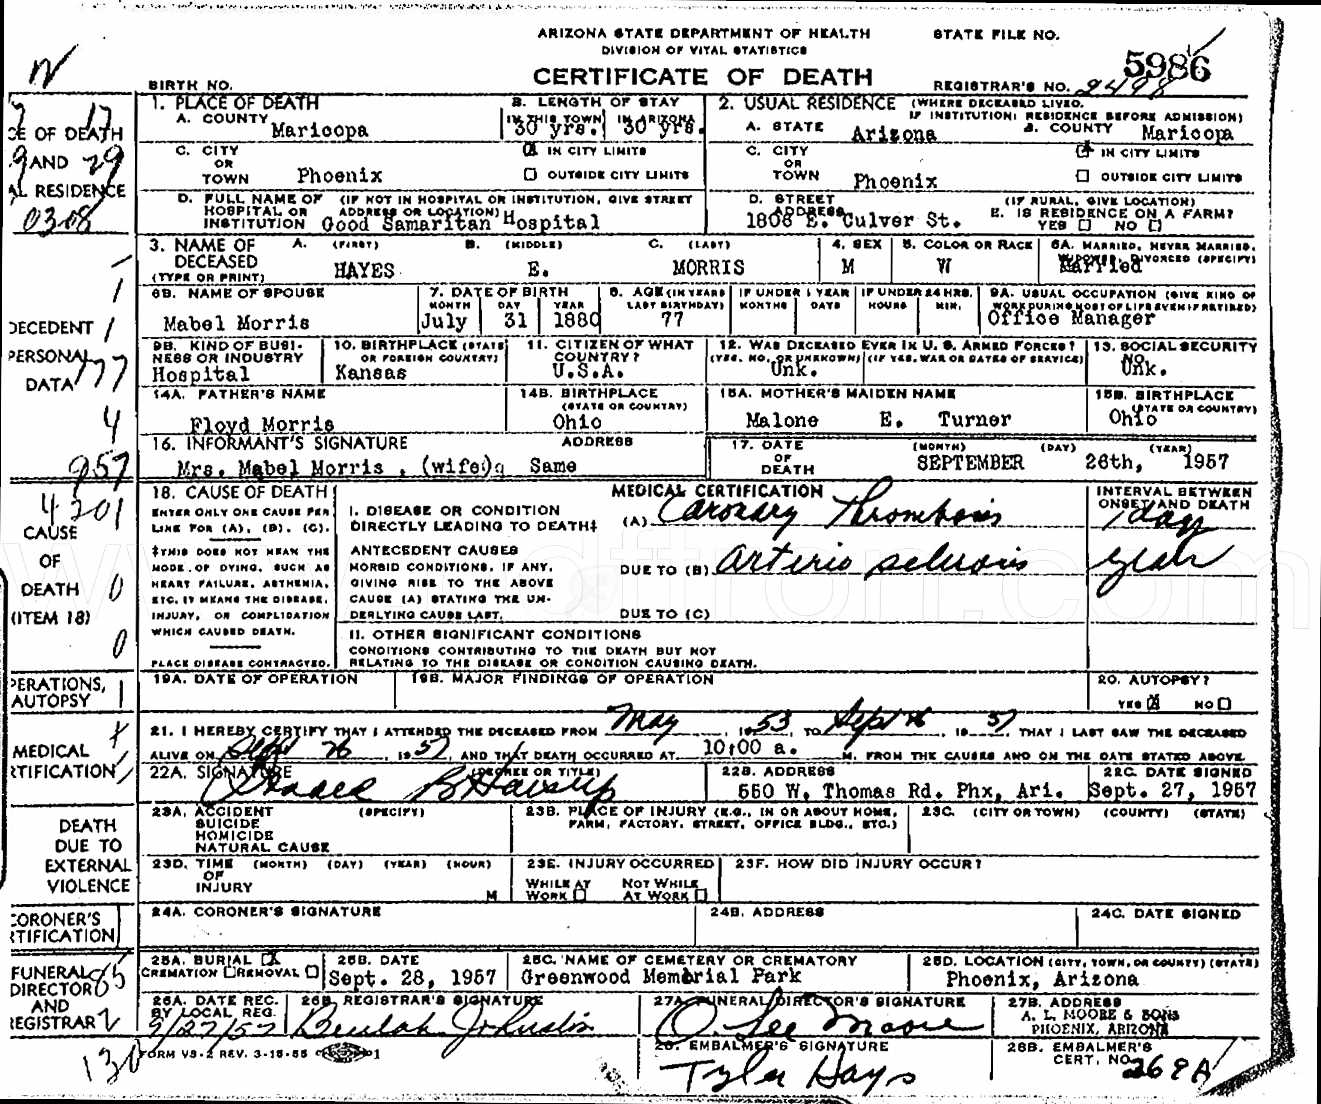 ARIZONA STATE DEPARTMENT OF HEALTH
DIVISION OF VITAL STATISTICS
CERTIFICATE OF DEATH
STATE FILE NO.
5986
BIRTH NO.
REGISTRAR'S NO. 2498
1. PLACE OF DEATH
A. COUNTY
Maricopa
B. LENGTH OF STAY
IN THIS TOWN IN ARIZONA
30 yrs. 30 yrs.
2. USUAL RESIDENCE (WHERE DECEASED LIVED.
IF INSTITUTION: RESIDENCE BEFORE ADMISSION)
A. STATE Arizona B. COUNTY Maricopa
C. CITY
OR
TOWN Phoenix
IN CITY LIMITS
OUTSIDE CITY LIMITS
C. CITY
OR
TOWN Phoenix
IN CITY LIMITS
OUTSIDE CITY LIMITS
D. FULL NAME OF (IF NOT IN HOSPITAL OR INSTITUTION, GIVE STREET
HOSPITAL OR ADDRESS OR LOCATION)
INSTITUTION Good Samaritan Hospital
D. STREET (IF RURAL, GIVE LOCATION)
ADDRESS
1806 E. Culver St.
E. IS RESIDENCE ON A FARM?
YES NO
3. NAME OF
DECEASED
(TYPE OR PRINT)
A. (FIRST) B. (MIDDLE) C. (LAST)
HAYES E. MORRIS
4. SEX
M
5. COLOR OR RACE
W
6A. MARRIED, NEVER MARRIED,
WIDOWED, DIVORCED (SPECIFY)
Married
6B. NAME OF SPOUSE
Mabel Morris
7. DATE OF BIRTH
MONTH DAY YEAR
July 31 1880
8. AGE (IN YEARS
LAST BIRTHDAY)
77
IF UNDER 1 YEAR
MONTHS DAYS
IF UNDER 24 HRS.
HOURS MIN.
9A. USUAL OCCUPATION (GIVE KIND OF
WORK DURING MOST OF LIFE EVEN IF RETIRED)
Office Manager
9B. KIND OF BUSI-
NESS OR INDUSTRY
Hospital
10. BIRTHPLACE (STATE
OR FOREIGN COUNTRY)
Kansas
11. CITIZEN OF WHAT
COUNTRY?
U.S.A.
12. WAS DECEASED EVER IN U. S. ARMED FORCES?
(YES, NO, OR UNKNOWN) (IF YES, WAR OR DATES OF SERVICE)
Unk.
13. SOCIAL SECURITY
NO.
Unk.
14A. FATHER'S NAME
Floyd Morris
14B. BIRTHPLACE
(STATE OR COUNTRY)
Ohio
15A. MOTHER'S MAIDEN NAME
Malone E. Turner
15B. BIRTHPLACE
(STATE OR COUNTRY)
Ohio
16. INFORMANT'S SIGNATURE ADDRESS
Mrs. Mabel Morris , (wife) Same
17. DATE
OF
DEATH
(MONTH) (DAY) (YEAR)
SEPTEMBER 26th, 1957
18. CAUSE OF DEATH
ENTER ONLY ONE CAUSE PER
LINE FOR (A), (B), (C).
‡THIS DOES NOT MEAN THE
MODE OF DYING, SUCH AS
HEART FAILURE, ASTHENIA,
ETC. IT MEANS THE DISEASE,
INJURY, OR COMPLICATION
WHICH CAUSED DEATH.
PLACE DISEASE CONTRACTED.
MEDICAL CERTIFICATION
I. DISEASE OR CONDITION
DIRECTLY LEADING TO DEATH‡
(A) Coronary Thrombosis
ANTECEDENT CAUSES
MORBID CONDITIONS, IF ANY,
GIVING RISE TO THE ABOVE
CAUSE (A) STATING THE UN-
DERLYING CAUSE LAST.
DUE TO (B) Arterio sclerosis
DUE TO (C)
INTERVAL BETWEEN
ONSET AND DEATH
1 day
years
II. OTHER SIGNIFICANT CONDITIONS
CONDITIONS CONTRIBUTING TO THE DEATH BUT NOT
RELATING TO THE DISEASE OR CONDITION CAUSING DEATH.
19A. DATE OF OPERATION
19B. MAJOR FINDINGS OF OPERATION
20. AUTOPSY?
YES NO
21. I HEREBY CERTIFY THAT I ATTENDED THE DECEASED FROM May, 1953 TO Sept 26, 1957 THAT I LAST SAW THE DECEASED
ALIVE ON Sept 26, 1957, AND THAT DEATH OCCURRED AT 10:00 a. M. FROM THE CAUSES AND ON THE DATE STATED ABOVE.
22A. SIGNATURE (DEGREE OR TITLE)
22B. ADDRESS
550 W. Thomas Rd. Phx, Ari.
22C. DATE SIGNED
Sept. 27, 1957
23A. ACCIDENT (SPECIFY)
SUICIDE
HOMICIDE
NATURAL CAUSE
23B. PLACE OF INJURY (E.G., IN OR ABOUT HOME,
FARM, FACTORY, STREET, OFFICE BLDG., ETC.)
23C. (CITY OR TOWN) (COUNTY) (STATE)
23D. TIME (MONTH) (DAY) (YEAR) (HOUR)
OF
INJURY M
23E. INJURY OCCURRED
WHILE AT NOT WHILE
WORK AT WORK
23F. HOW DID INJURY OCCUR?
24A. CORONER'S SIGNATURE
24B. ADDRESS
24C. DATE SIGNED
25A. BURIAL
CREMATION REMOVAL
25B. DATE
Sept. 28, 1957
25C. NAME OF CEMETERY OR CREMATORY
Greenwood Memorial Park
25D. LOCATION (CITY, TOWN, OR COUNTY) (STATE)
Phoenix, Arizona
26A. DATE REC.
BY LOCAL REG.
9/27/57
26B. REGISTRAR'S SIGNATURE
Beulah Johnston
27A. FUNERAL DIRECTOR'S SIGNATURE
O. Lee Moore
27B. ADDRESS
A. L. MOORE & SONS
PHOENIX, ARIZONA
28. EMBALMER'S SIGNATURE
Tyler Hays
28B. EMBALMER'S
CERT. NO. 268A
FORM VS-2 REV. 3-15-55
CE OF DEATH
AND
AL RESIDENCE
0308
DECEDENT
PERSONAL
DATA
77
4
957
4201
CAUSE
OF
DEATH
(ITEM 18)
0
0
PERATIONS,
AUTOPSY
MEDICAL
RTIFICATION
DEATH
DUE TO
EXTERNAL
VIOLENCE
CORONER'S
RTIFICATION
FUNERAL
DIRECTOR
AND
REGISTRAR
130